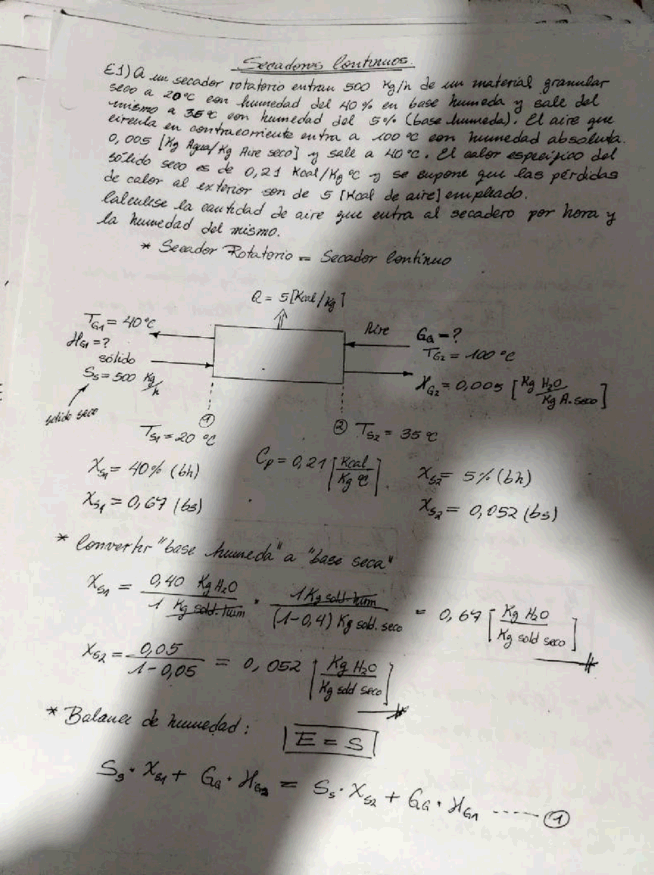 Secadores Continuos.
E1) A un secador rotatorio entran 500 Kg/h de un material granular
seco a 20°C con humedad del 40% en base humeda y sale del
mismo a 35°C con humedad del 5% (base humeda). El aire que
circula en contracorriente entra a 100°C con humedad absoluta
0,005 [Kg Agua/Kg Aire seco] y sale a 40°C. El calor especifico del
sólido seco es de 0,21 Kcal/Kg°C y se supone que las pérdidas
de calor al exterior son de 5 [Kcal de aire] empleado.
Calculese la cantidad de aire que entra al secadero por hora y
la humedad del mismo.
* Secador Rotatorio = Secador Contínuo
Q = 5 [Kcal/Kg]
TG1 = 40°C
HG1 = ?
sólido
Ss = 500 Kg/h
sólido seco
Aire
Ga = ?
TG2 = 100°C
HG2 = 0,005 [Kg H2O / Kg A. seco]
① TS1 = 20 °C
② TS2 = 35°C
XS1 = 40% (bh)
XS1 = 0,67 (bs)
Cp = 0,21 [Kcal / Kg °C].
XS2 = 5% (bh)
XS2 = 0,052 (bs)
* Convertir "base humeda" a "base seca"
XS1 = 0,40 Kg H2O / 1 Kg sold. hum · 1 Kg sold. hum / (1-0,4) Kg sold. seco = 0,67 [Kg H2O / Kg sold seco]
XS2 = 0,05 / 1-0,05 = 0,052 [Kg H2O / Kg sold seco]
* Balance de humedad:
E = S
Ss · XS1 + Ga · HG2 = Ss · XS2 + Ga · HG1 ------ ①